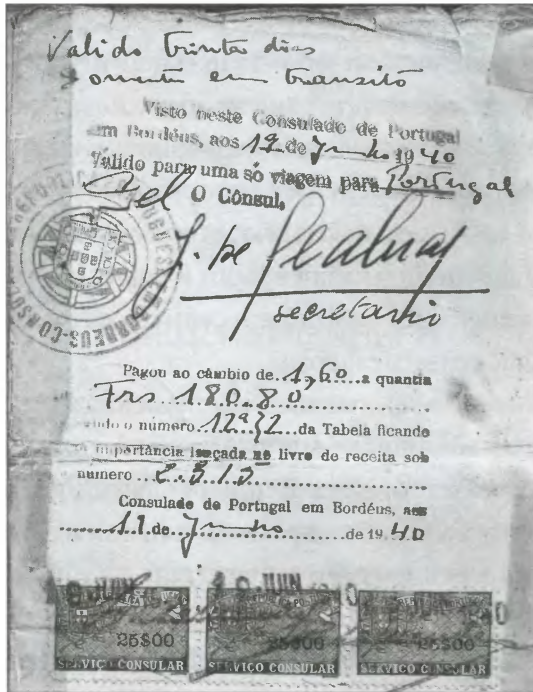 Valido trinta dias
somente em transito
Visto neste Consulado de Portugal
em Bordéus, aos de Junho 1940
Válido para uma só viagem para Portugal
O Cônsul,
secretario
Pagou ao câmbio de 1,60 a quantia
Frs 180.80
o número da Tabela ficando
importância lançada no livro de receita sob
numero
Consulado de Portugal em Bordéus, aos
de Junho de 1940
JUN JUN
25$00 25$00 25$00
SERVIÇO CONSULAR SERVIÇO CONSULAR SERVIÇO CONSULAR